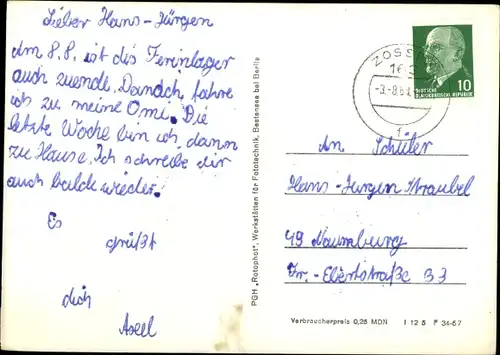 Lieber Hans-Jürgen
Am 8.8. ist das Ferienlager
auch zuende. Danach fahre
ich zu meine Omi. Die
letzte Woche bin ich dann
zu Hause. Ich schreibe dir
auch balde wieder.
Es
grüßt
dich
Axel
PGH „Rotophot", Werkstätten für Fototechnik, Bestensee bei Berlin
ZOSSEN
10
DEUTSCHE
DEMOKRATISCHE REPUBLIK
An Schüler
Hans-Jürgen Straubel
49 Naumburg
Fr.-Ebertstraße 33
Verbraucherpreis 0,25 MDN I 12 5 P 34-67